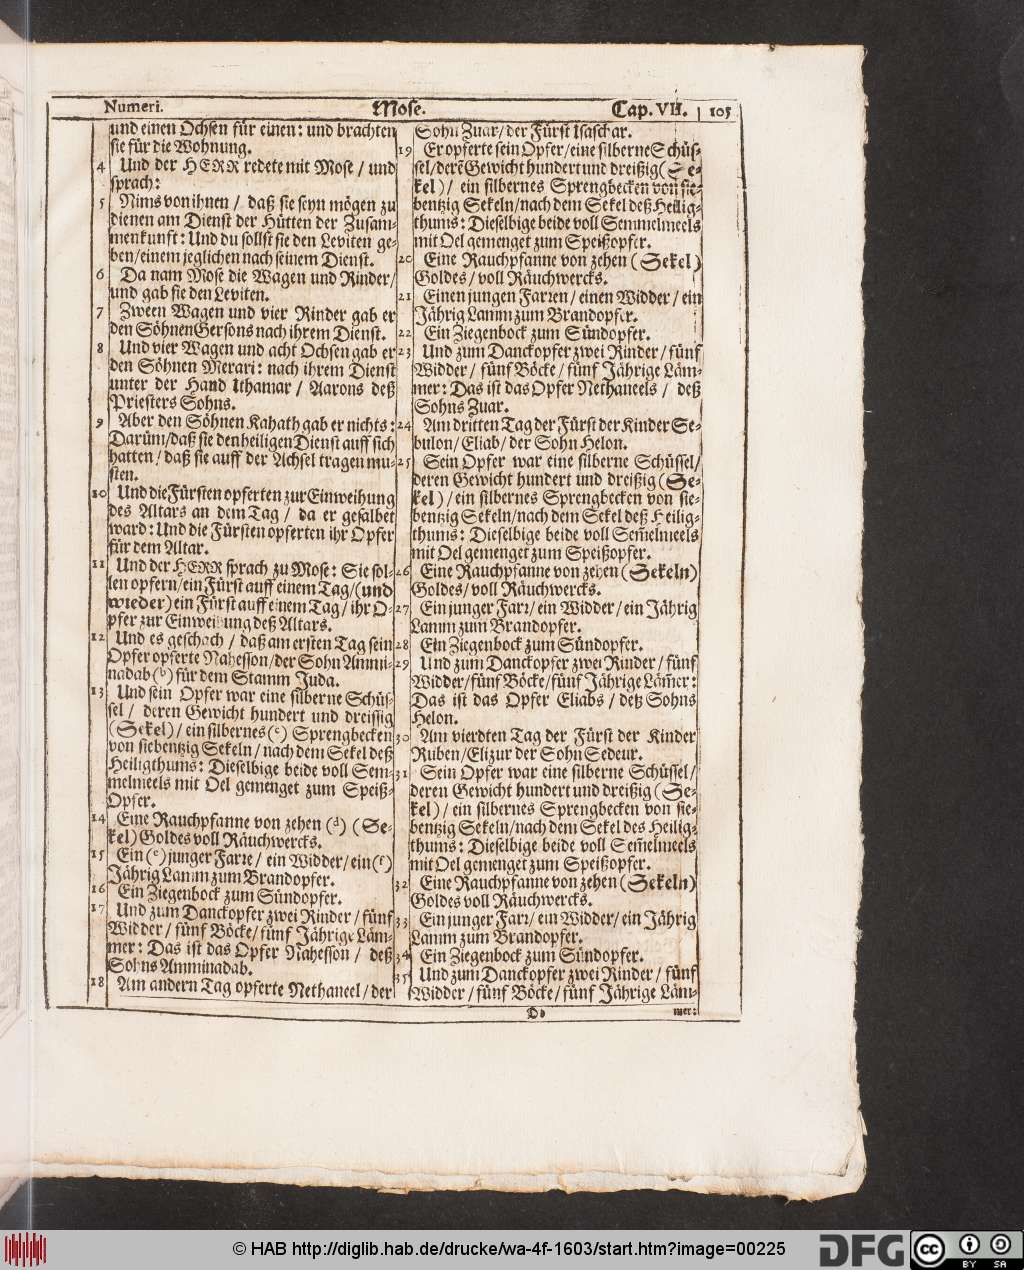 Numeri. Mose. Cap. VII. 105
und einen Ochsen für einen: und brachten
sie für die Wohnung.
4 Und der HERR redete mit Mose / und
sprach:
5 Nims von ihnen / daß sie seyn mögen zu
dienen am Dienst der Hütten der Zusam-
menkunft: Und du sollst sie den Leviten ge-
ben/einem jeglichen nach seinem Dienst.
6 Da nam Mose die Wagen und Rinder/
und gab sie den Leviten.
7 Zween Wagen und vier Rinder gab er
den Söhnen Gersons nach ihrem Dienst.
8 Und vier Wagen und acht Ochsen gab er
den Söhnen Merari: nach ihrem Dienst
unter der Hand Ithamar / Aarons deß
Priesters Sohns.
9 Aber den Söhnen Kahath gab er nichts:
Darüm/daß sie den heiligen Dienst auff sich
hatten / daß sie auff der Achsel tragen mu-
sten.
10 Und die Fürsten opferten zur Einweihung
des Altars an dem Tag / da er gesalbet
ward: Und die Fürsten opferten ihr Opfer
für dem Altar.
11 Und der HERR sprach zu Mose: Sie sol-
len opfern/ein Fürst auff einem Tag/(und
wieder) ein Fürst auff einem Tag / ihr O-
pfer zur Einweihung deß Altars.
12 Und es geschach / daß am ersten Tag sein
Opfer opferte Nahesson/der Sohn Ammi-
nadab (b) für dem Stamm Juda.
13 Und sein Opfer war eine silberne Schüs-
sel / deren Gewicht hundert und dreissig
(Sekel) / ein silbernes (c) Sprengbecken
von siebentzig Sekeln / nach dem Sekel deß
Heiligthums: Dieselbige beide voll Sem-
melmeels mit Oel gemenget zum Speiß-
Opfer.
14 Eine Rauchpfanne von zehen (d) (Se-
kel) Goldes voll Räuchwercks.
15 Ein (e) junger Farre / ein Widder/ein (f)
Jährig Lamm zum Brandopfer.
16 Ein Ziegenbock zum Sündopfer.
17 Und zum Danckopfer zwei Rinder / fünf
Widder / fünf Böcke/ fünf Jährige Läm-
mer: Das ist das Opfer Nahesson / deß
Sohns Amminadab.
18 Am andern Tag opferte Nethaneel / der
Sohn Zuar/ der Fürst Isaschar.
19 Er opferte sein Opfer/eine silberne Schüs-
sel/derē Gewicht hundert und dreißig (Se-
kel) / ein silbernes Sprengbecken von sie-
bentzig Sekeln/nach dem Sekel deß Heilig-
thums: Dieselbige beide voll Semmelmeels
mit Oel gemenget zum Speißopfer.
20 Eine Rauchpfanne von zehen (Sekel)
Goldes / voll Räuchwercks.
21 Einen jungen Farren / einen Widder / ein
Jährig Lamm zum Brandopfer.
22 Ein Ziegenbock zum Sündopfer.
23 Und zum Danckopfer zwei Rinder / fünf
Widder / fünf Böcke / fünf Jährige Läm-
mer: Das ist das Opfer Nethaneels / deß
Sohns Zuar.
24 Am dritten Tag der Fürst der Kinder Se-
bulon/ Eliab/ der Sohn Helon.
25 Sein Opfer war eine silberne Schüssel/
deren Gewicht hundert und dreißig (Se-
kel) / ein silbernes Sprengbecken von sie-
bentzig Sekeln/nach dem Sekel deß Heilig-
thums: Dieselbige beide voll Sem̃elmeels
mit Oel gemenget zum Speißopfer.
26 Eine Rauchpfanne von zehen (Sekeln)
Goldes/ voll Räuchwercks.
27 Ein junger Farr/ ein Widder /ein Jährig
Lamm zum Brandopfer.
28 Ein Ziegenbock zum Sündopfer.
29 Und zum Danckopfer zwei Rinder / fünf
Widder/fünf Böcke/fünf Jährige Läm̃er:
Das ist das Opfer Eliabs / deß Sohns
Helon.
30 Am vierdten Tag der Fürst der Kinder
Ruben/Elizur der Sohn Sedeur.
31 Sein Opfer war eine silberne Schüssel/
deren Gewicht hundert und dreißig (Se-
kel) / ein silbernes Sprengbecken von sie-
bentzig Sekeln/nach dem Sekel des Heilig-
thums: Dieselbige beide voll Sem̃elmeels
mit Oel gemenget zum Speißopfer.
32 Eine Rauchpfanne von zehen (Sekeln)
Goldes voll Räuchwercks.
33 Ein junger Farr/ ein Widder/ ein Jährig
Lamm zum Brandopfer.
34 Ein Ziegenbock zum Sündopfer.
35 Und zum Danckopfer zwei Rinder / fünf
Widder / fünf Böcke / fünf Jährige Läm-
mer:
© HAB http://diglib.hab.de/drucke/wa-4f-1603/start.htm?image=00225
DFG
cc BY SA